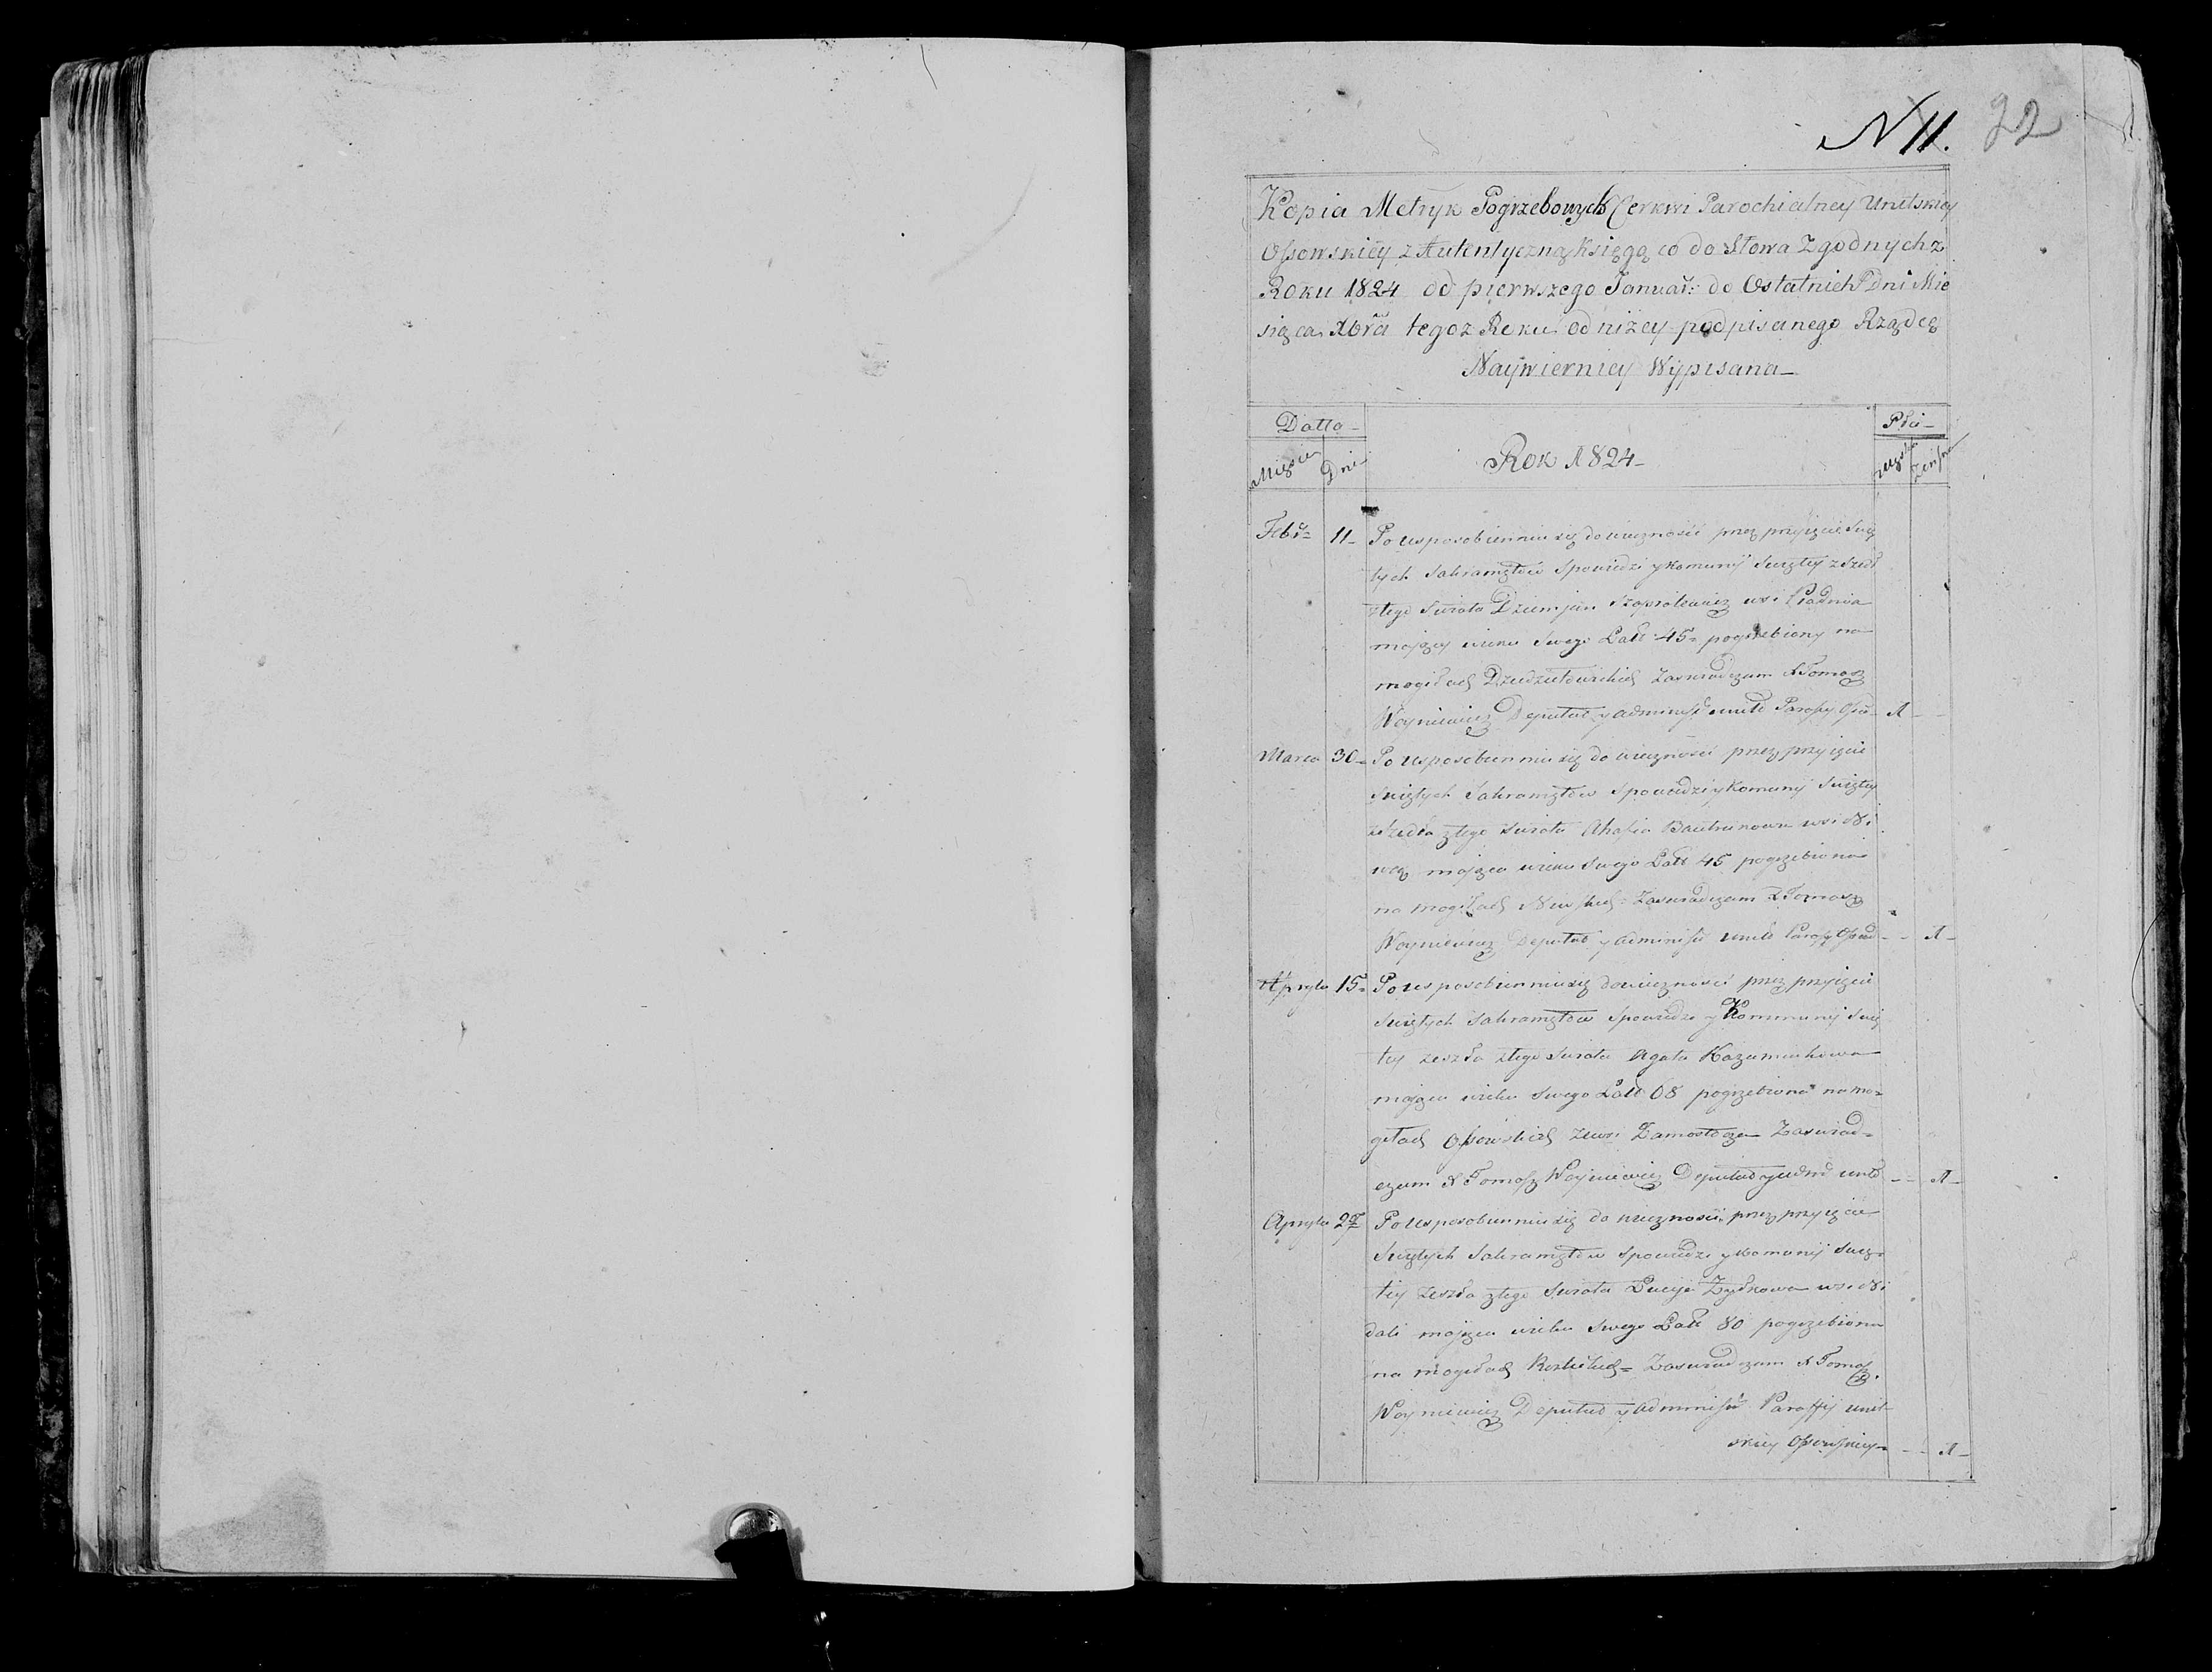 N 11. 22
Kopia Metryk Pogrzebowych Cerkwi Parochialney Unitskiey
Ossowskiey z Autentyczną Księgą co do Słowa Zgodnych z
Roku 1824 od pierwszego Januar: do Ostatnich dni Mie
siąca Xbra tegoz Roku od niżey podpisanego Rządcę
Naywierniey Wypisana
Datta Płci
Miesiąc Dni Rok 1824 Męska Zeńska
Febr 11 Po usposobienniu się do wieczności przez przyięcie Świę
tych Sakramętów Spowiedzi y komunij Swiętey zszedł
z tego Swiata Dziemjan wsi
maięcy wieku Swego Latt 45 pogrzebiony na
mogiłach Zaswiadczam X Tomasz
Woyniewicz Deputat y Administ unit Parafij Osso 1
Marca 30 Po usposobienniu się do wieczności przez przyięcie
Swiętych Sakramętów Spowiedzi y Komunij Swiętey
zeszła z tego Swiata Ahafia wsi Ni
wey maięca wieku Swego Latt 45 pogrzebiona
na mogiłach Zaswiadczam X Tomasz
Woyniewicz Deputat y Administ unit Parafij 1
Apryla 15 Po usposobienniu się do wieczności przez przyięcie
Swiętych Sakramętów Spowiedzi y Kommunij Swię
tey zeszła z tego Swiata Agata
maięca wieku Swego Latt 68 pogrzebiona na mo
giłach Ossowskich ze wsi Zamostocza Zaswiad
czam X Tomasz Woyniewicz Deputat y Adm unit 1
Apryla 27 Po usposobienniu się do wieczności przez przyięcie
Swiętych Sakramętów Spowiedzi y komunij Swię
tey zeszła z tego Swiata wsi
dali maięca wieku Swego Latt 80 pogrzebiona
na mogiłach Zaswiadczam X Tomasz
Woyniewicz Deputat y Administ Paraffij unit
skiey Ossowskiey 1